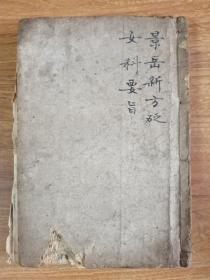 景岳新方砭
女科要旨